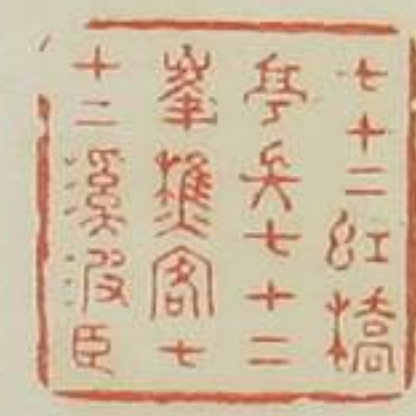 七十二紅橋
亭長七十二
峯樵客七
十二溪波臣